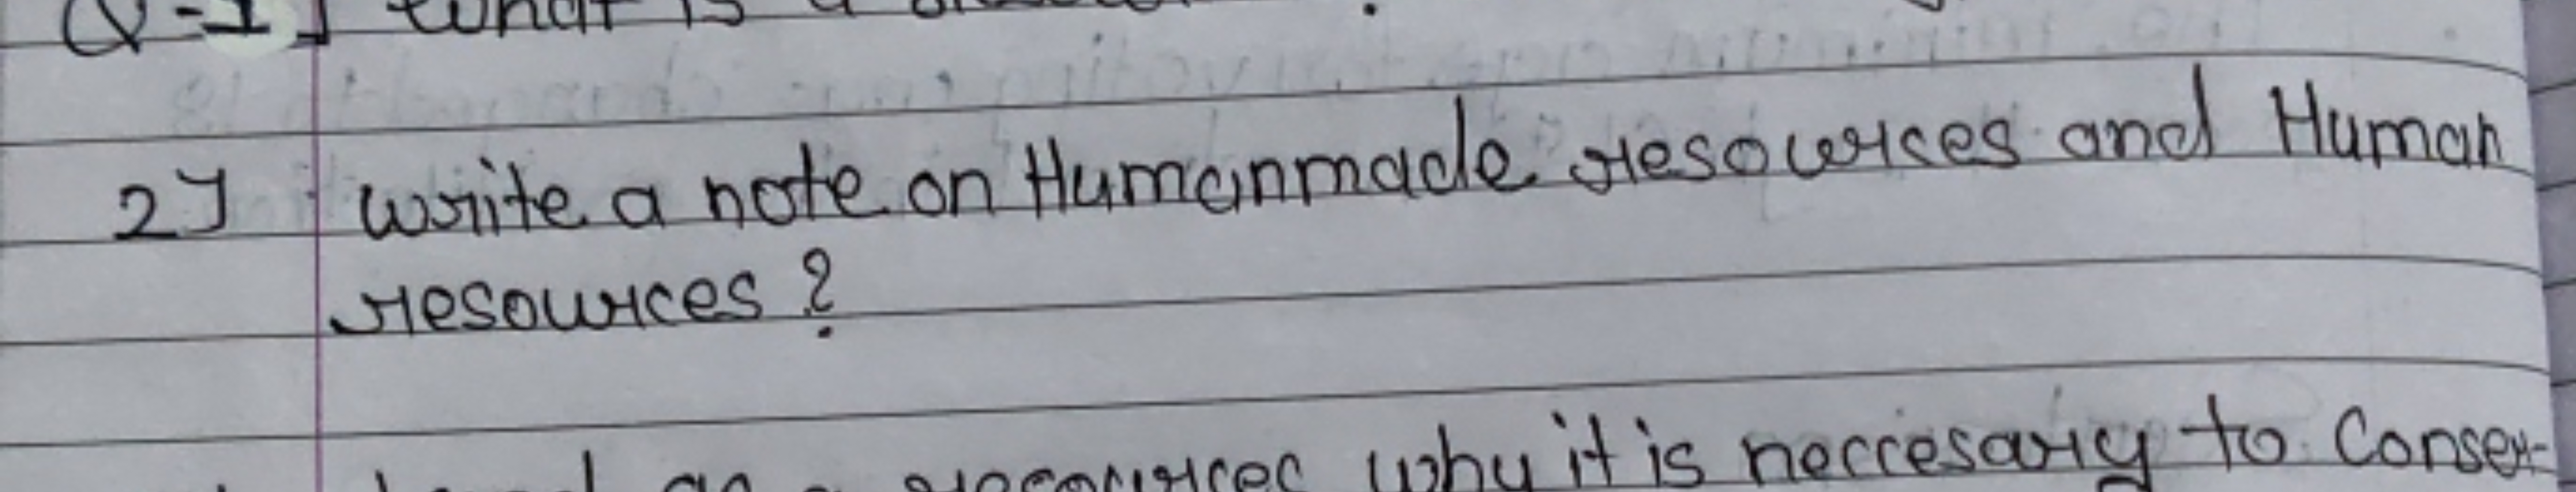 Q-1] What is a
2] Write a note on Humanmade resources and Human
resources?
as a resources why it is neccesary to Conser-